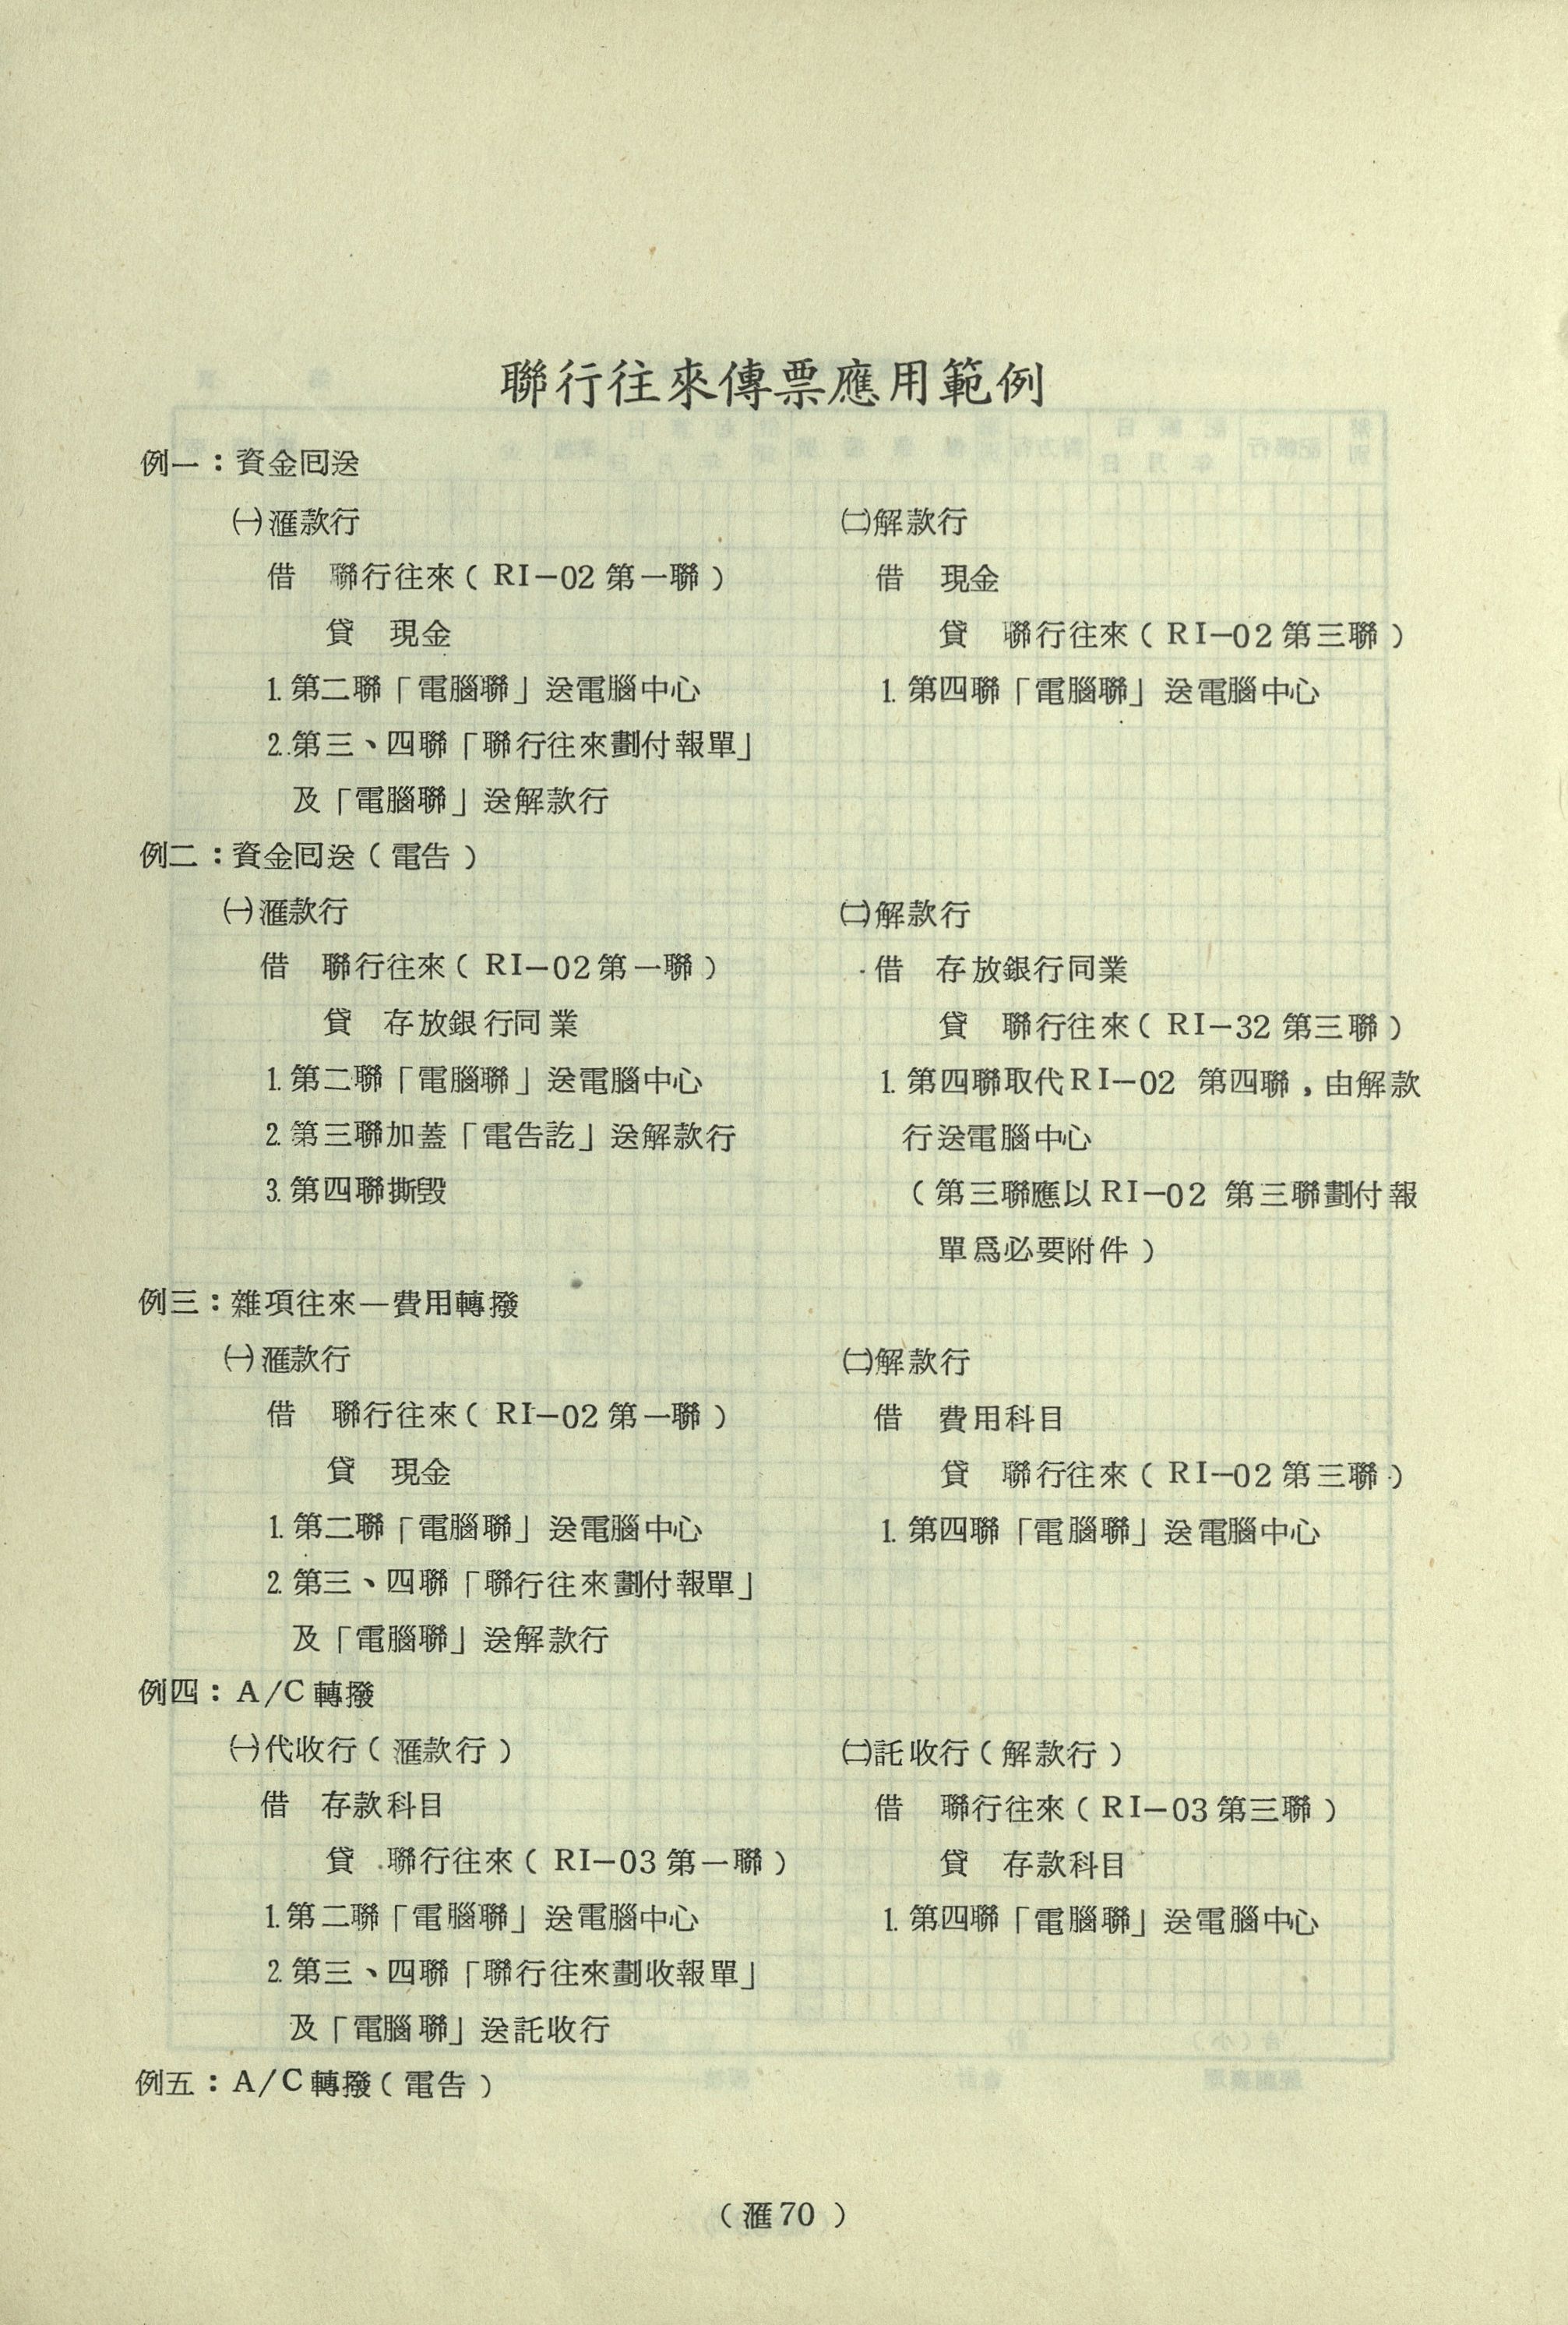 聯行往來傳票應用範例
例一：資金回送
㈠滙款行
借　聯行往來（RI—02第一聯）
貸　現金
1.第二聯「電腦聯」送電腦中心
2.第三、四聯「聯行往來劃付報單」
及「電腦聯」送解款行
㈡解款行
借　現金
貸　聯行往來（RI—02第三聯）
1.第四聯「電腦聯」送電腦中心
例二：資金回送（電告）
㈠滙款行
借　聯行往來（RI—02第一聯）
貸　存放銀行同業
1.第二聯「電腦聯」送電腦中心
2.第三聯加蓋「電告訖」送解款行
3.第四聯撕毀
㈡解款行
借　存放銀行同業
貸　聯行往來（RI—32第三聯）
1.第四聯取代RI—02 第四聯，由解款
行送電腦中心
（第三聯應以RI—02 第三聯劃付報
單爲必要附件）
例三：雜項往來—費用轉撥
㈠滙款行
借　聯行往來（RI—02第一聯）
貸　現金
1.第二聯「電腦聯」送電腦中心
2.第三、四聯「聯行往來劃付報單」
及「電腦聯」送解款行
㈡解款行
借　費用科目
貸　聯行往來（RI—02第三聯）
1.第四聯「電腦聯」送電腦中心
例四：A/C轉撥
㈠代收行（滙款行）
借　存款科目
貸　聯行往來（RI—03第一聯）
1.第二聯「電腦聯」送電腦中心
2.第三、四聯「聯行往來劃收報單」
及「電腦聯」送託收行
㈡託收行（解款行）
借　聯行往來（RI—03第三聯）
貸　存款科目
1.第四聯「電腦聯」送電腦中心
例五：A/C轉撥（電告）
（滙70）